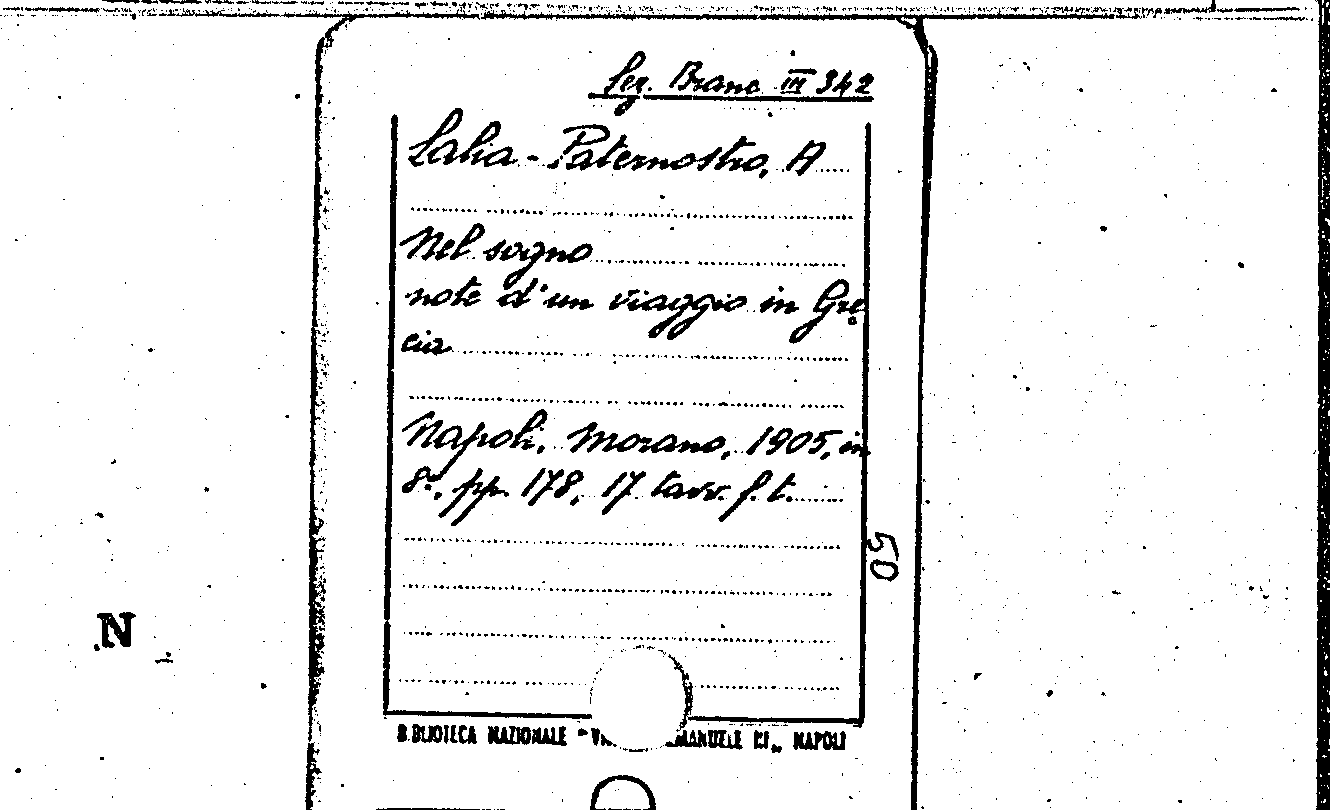 Sez. Branc III 342
Lalia - Paternostro, A
Nel sogno
note d'un viaggio in Gre
cia
Napoli, Morano, 1905, in
8°, pp. 178, 17 tavv. f. t.
50
N
BIBLIOTECA NAZIONALE "V EMANUELE III„ NAPOLI